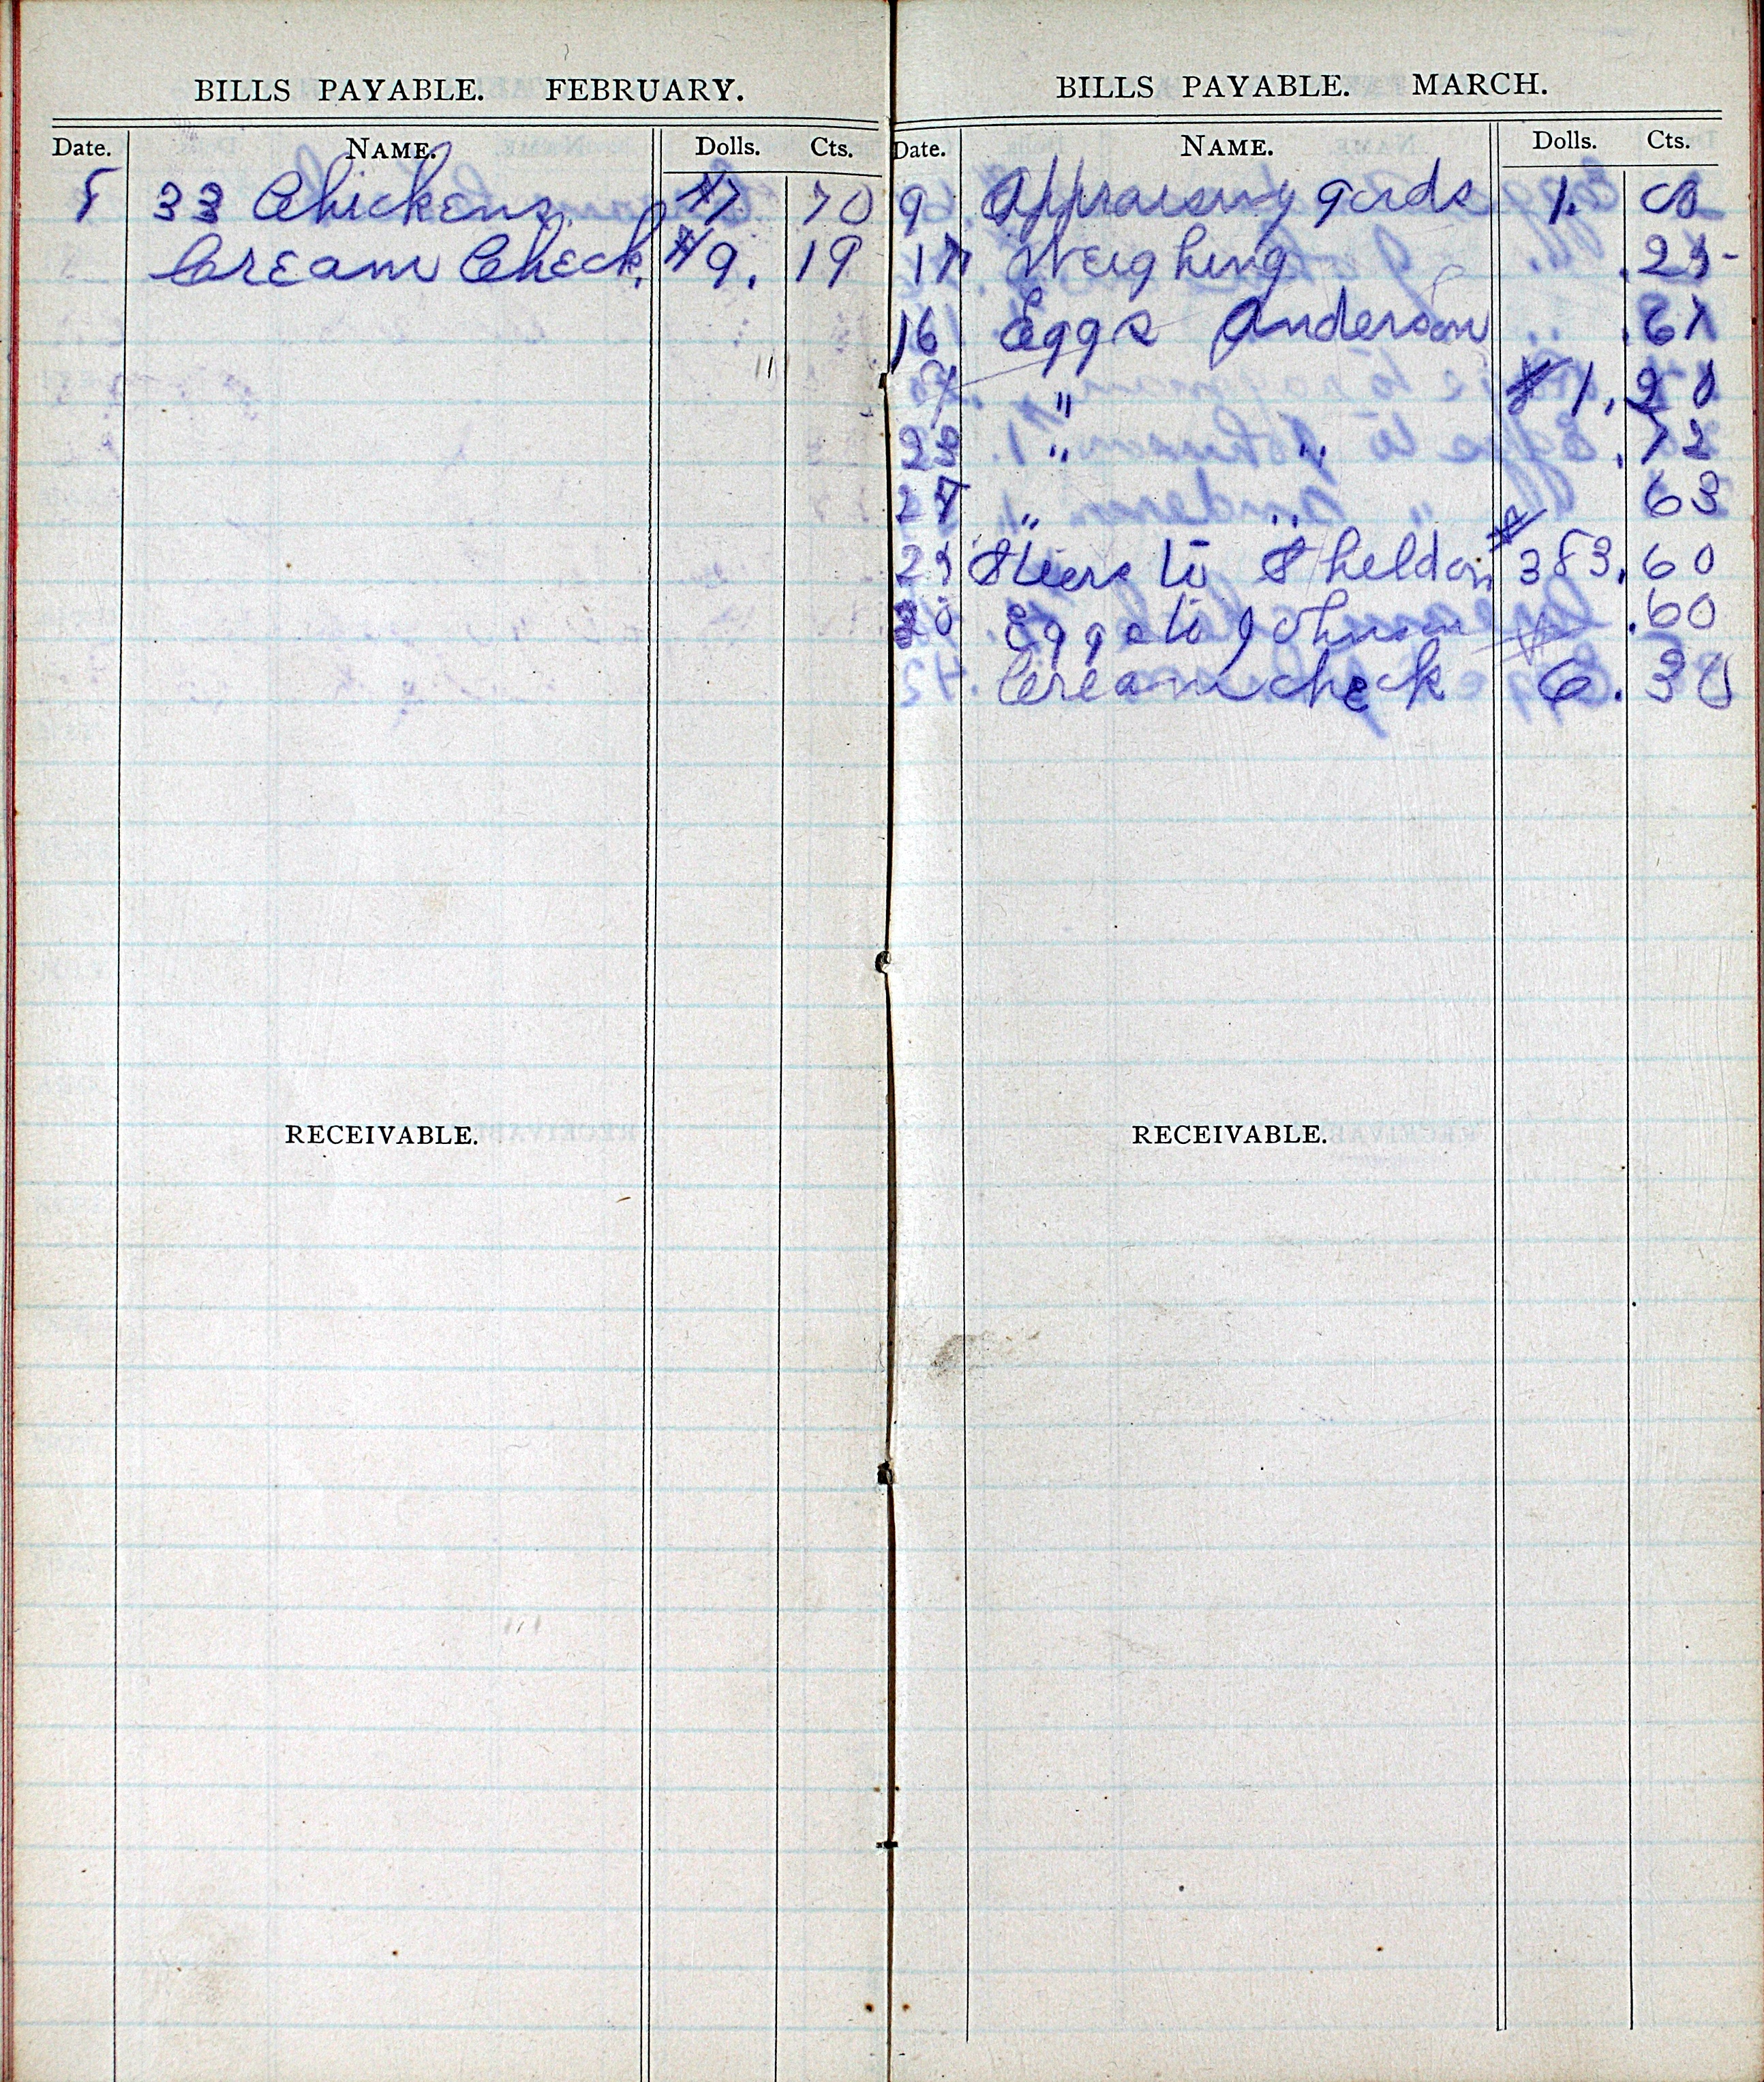 BILLS PAYABLE. FEBRUARY.
Date. NAME. Dolls. Cts.
8 33 Chickens $7 70
Cream Check. $9. 19
RECEIVABLE.
BILLS PAYABLE. MARCH.
Date. NAME. Dolls. Cts.
9 Appraising goods 1. 00
17 Weighing .25
16 Eggs Anderson .61
" $1.20
23 " " .72
27 " " 63
25 Steers to Sheldon $383.60
30 Eggs to Johnson .60
Cream check $6.30
RECEIVABLE.